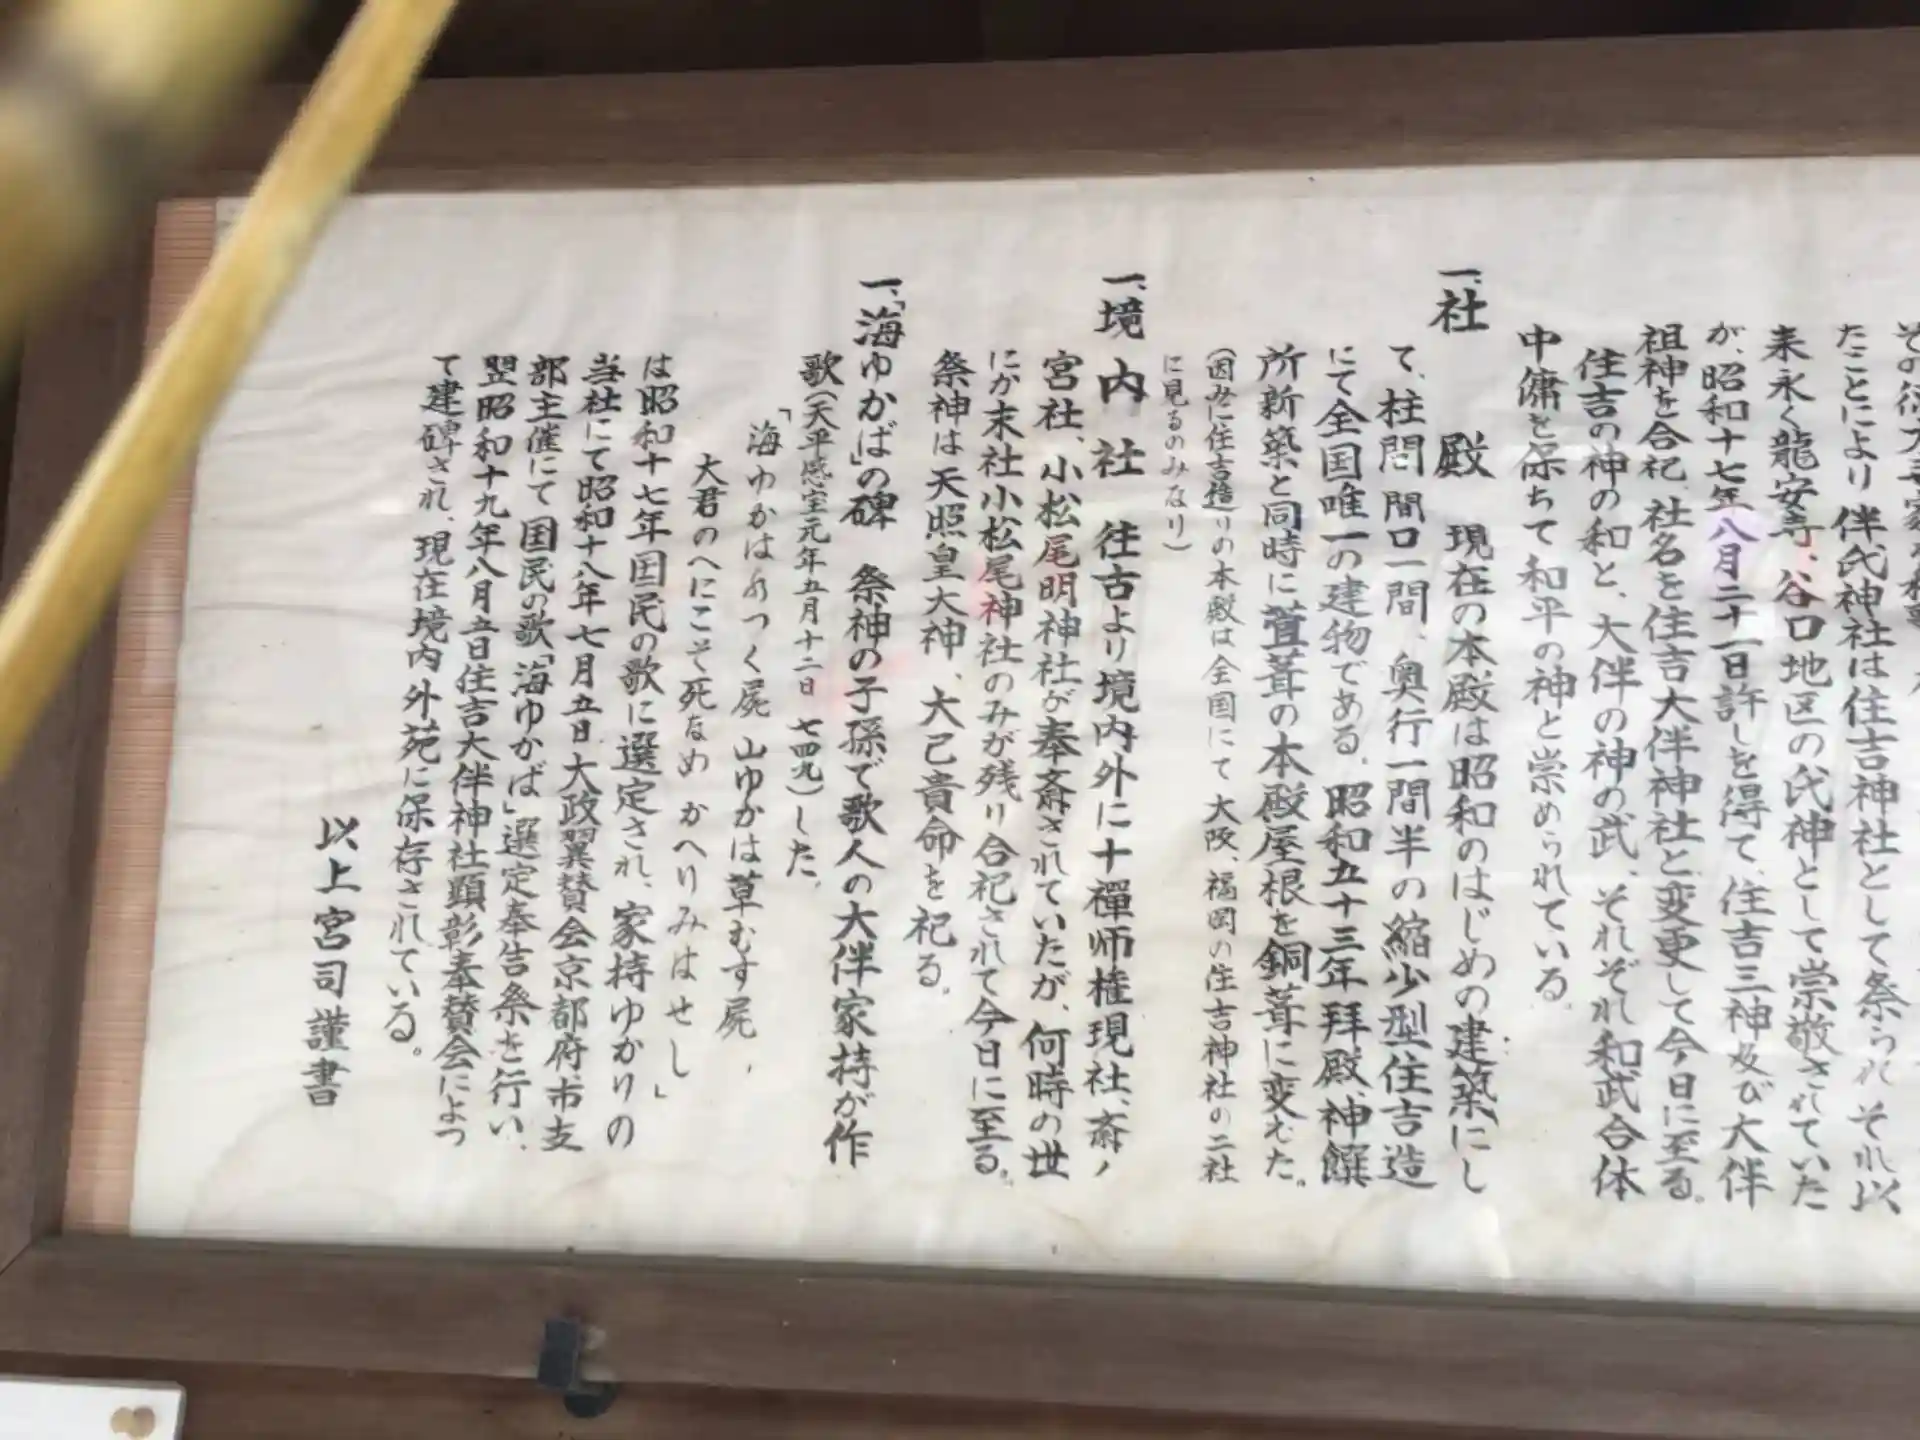 たことにより伴氏神社は住吉神社として祭られそれ以
来永く龍安寺、谷口地区の氏神として崇敬されていた
が、昭和十七年八月二十一日許しを得て、住吉三神及び大伴
祖神を合祀、社名を住吉大伴神社と変更して今日に至る。
住吉の神の和と、大伴の神の武、それぞれ和武合体
中傭を保ちて和平の神と崇められている。
一、社殿 現在の本殿は昭和のはじめの建築にし
て、柱間間口一間、奥行一間半の縮少型住吉造
にて全国唯一の建物である。昭和五十三年拝殿、神饌
所新築と同時に萱葺の本殿屋根を銅葺に変えた。
(因みに住吉造りの本殿は全国にて大阪、福岡の住吉神社の二社
に見るのみなり)
一、境内社 往古より境内外に十禪师権現社、斎ノ
宮社、小松尾明神社が奉斎されていたが、何時の世
にか末社小松尾神社のみが残り合祀されて今日に至る。
祭神は天照皇大神、大己貴命を祀る。
一、「海ゆかば」の碑 祭神の子孫で歌人の大伴家持が作
歌(天平感宝元年五月十二日 七四九)した、
「海ゆかは水つく屍 山ゆかは草むす屍、
大君のへにこそ死なめ かへりみはせし」
は昭和十七年国民の歌に選定され、家持ゆかりの
当社にて昭和十八年七月五日、大政翼賛会京都府市支
部主催にて国民の歌「海ゆかば」選定奉告祭を行い、
翌昭和十九年八月五日住吉大伴神社顕彰奉賛会によっ
て建碑され、現在境内外苑に保存されている。
以上宮司謹書